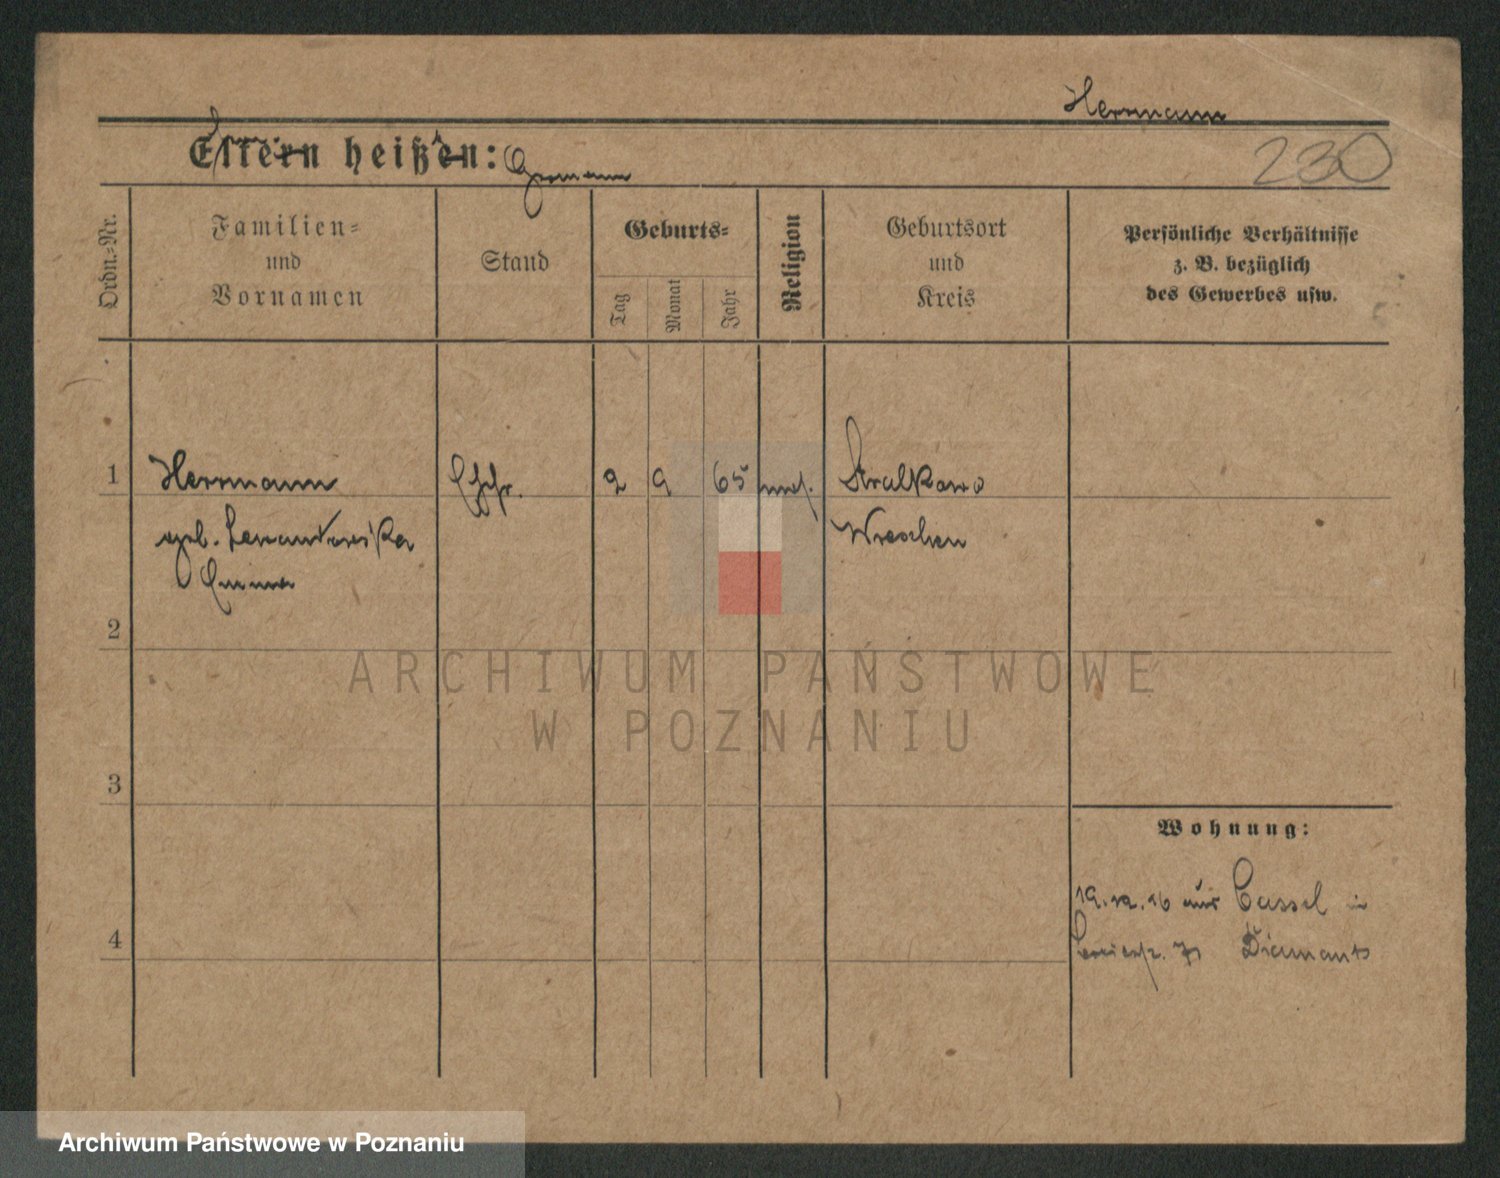 Herrmann
Eltern heißen:
230
Ordn.-Nr.
Familien-
und
Vornamen
Stand
Geburts-
Tag
Monat
Jahr
Religion
Geburtsort
und
Kreis
Persönliche Verhältnisse
z. B. bezüglich
des Gewerbes usw.
1 Herrmann Ehfr. 2 9 65 Stralkowo
geb. Lewandowska Wreschen
Emma
2
ARCHIWUM PAŃSTWOWE
W POZNANIU
3
Wohnung:
19.12.16 aus Cassel in
71 Diamants
4
Archiwum Państwowe w Poznaniu